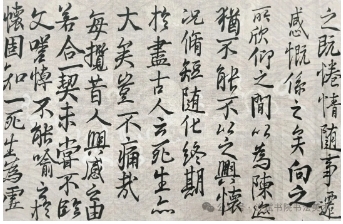 之既惓情隨事遷
感慨係之矣向之
所欣仰之間以為陳
猶不能不以之興懷
況脩短随化終期
於盡古人云死生亦
大矣豈不痛哉
每攬昔人興感之由
若合一契未嘗不臨
文嗟悼不能喻之於
懷固知一死生為虛